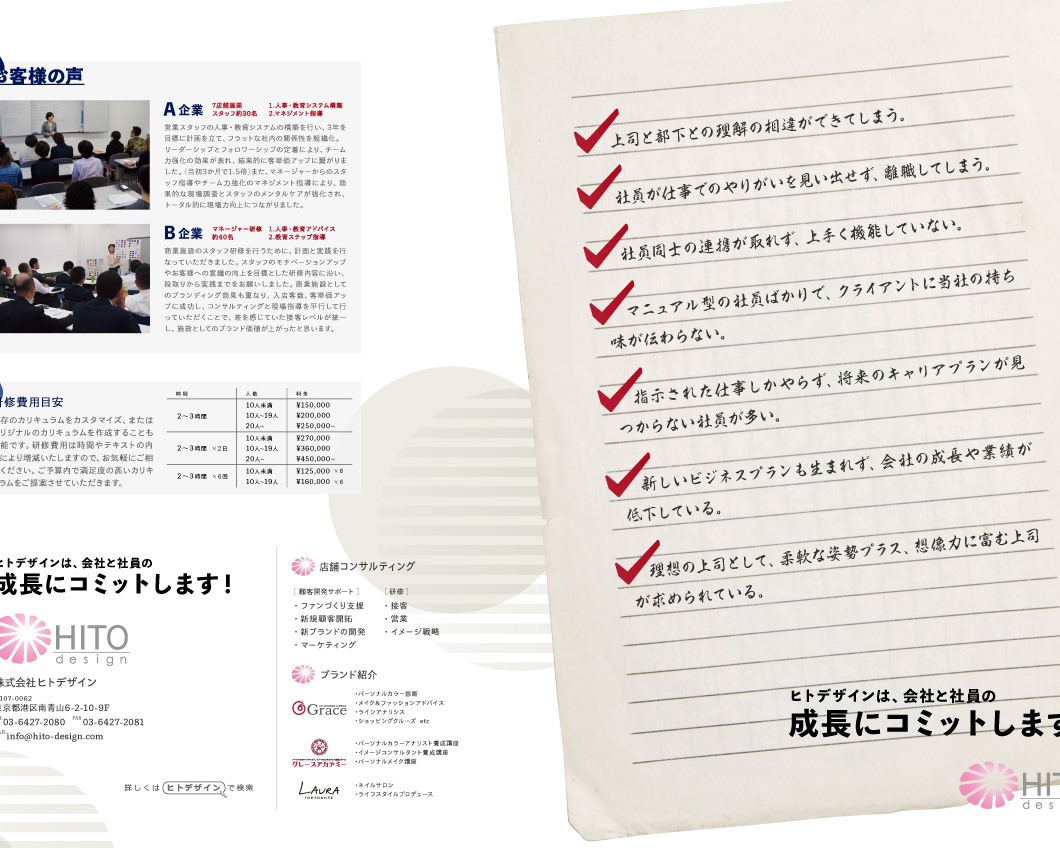 お客様の声
A企業
7店舗展開
スタッフ約30名
1.人事・教育システム構築
2.マネジメント指導
営業スタッフの人事・教育システムの構築を行い、3年を
目標に計画を立て、フラットな社内の関係性を組織化。
リーダーシップとフォロワーシップの定着により、チーム
力強化の効果が表れ、結果的に客単価アップに繋がりま
した。(当初3か月で1.5倍)また、マネージャーからのスタ
ッフ指導やチーム力強化のマネジメント指導により、効
果的な現場調査とスタッフのメンタルケアが強化され、
トータル的に現場力向上につながりました。
B企業
マネージャー研修
約40名
1.人事・教育アドバイス
2.教育ステップ指導
商業施設のスタッフ研修を行うために、計画と実践を行
なっていただきました。スタッフのモチベーションアップ
やお客様への意識の向上を目標とした研修内容に沿い、
段取りから実践までをお願いしました。商業施設として
のブランディング効果も重なり、入店客数、客単価アッ
プに成功し、コンサルティングと現場指導を平行して行
っていただくことで、差を感じていた接客レベルが統一
し、施設としてのブランド価値が上がったと思います。
研修費用目安
存のカリキュラムをカスタマイズ、または
リジナルのカリキュラムを作成することも
能です。研修費用は時間やテキストの内
により増減いたしますので、お気軽にご相
ください。ご予算内で満足度の高いカリキ
ラムをご提案させていただきます。
時間 人数 料金
2〜3時間
10人未満 ¥150,000
10人〜19人 ¥200,000
20人〜 ¥250,000〜
2〜3時間 ×2日
10人未満 ¥270,000
10人〜19人 ¥360,000
20人〜 ¥450,000〜
2〜3時間 ×6回
10人未満 ¥125,000 ×6
10人〜19人 ¥160,000 ×6
ヒトデザインは、会社と社員の
成長にコミットします!
HITO
design
株式会社ヒトデザイン
107-0062
東京都港区南青山6-2-10-9F
03-6427-2080 FAX 03-6427-2081
info@hito-design.com
詳しくは ヒトデザイン で検索
店舗コンサルティング
[顧客開発サポート]
・ファンづくり支援
・新規顧客開拓
・新ブランドの開発
・マーケティング
[研修]
・接客
・営業
・イメージ戦略
ブランド紹介
Grace
・パーソナルカラー診断
・メイク&ファッションアドバイス
・ラインアナリシス
・ショッピングクルーズ etc
グレースアカデミー
・パーソナルカラーアナリスト養成講座
・イメージコンサルタント養成講座
・パーソナルメイク講座
LAURA
・ネイルサロン
・ライフスタイルプロデュース
上司と部下との理解の相違ができてしまう。
社員が仕事でのやりがいを見い出せず、離職してしまう。
社員同士の連携が取れず、上手く機能していない。
マニュアル型の社員ばかりで、クライアントに当社の持ち
味が伝わらない。
指示された仕事しかやらず、将来のキャリアプランが見
つからない社員が多い。
新しいビジネスプランも生まれず、会社の成長や業績が
低下している。
理想の上司として、柔軟な姿勢プラス、想像力に富む上司
が求められている。
ヒトデザインは、会社と社員の
成長にコミットします
HITO
desi